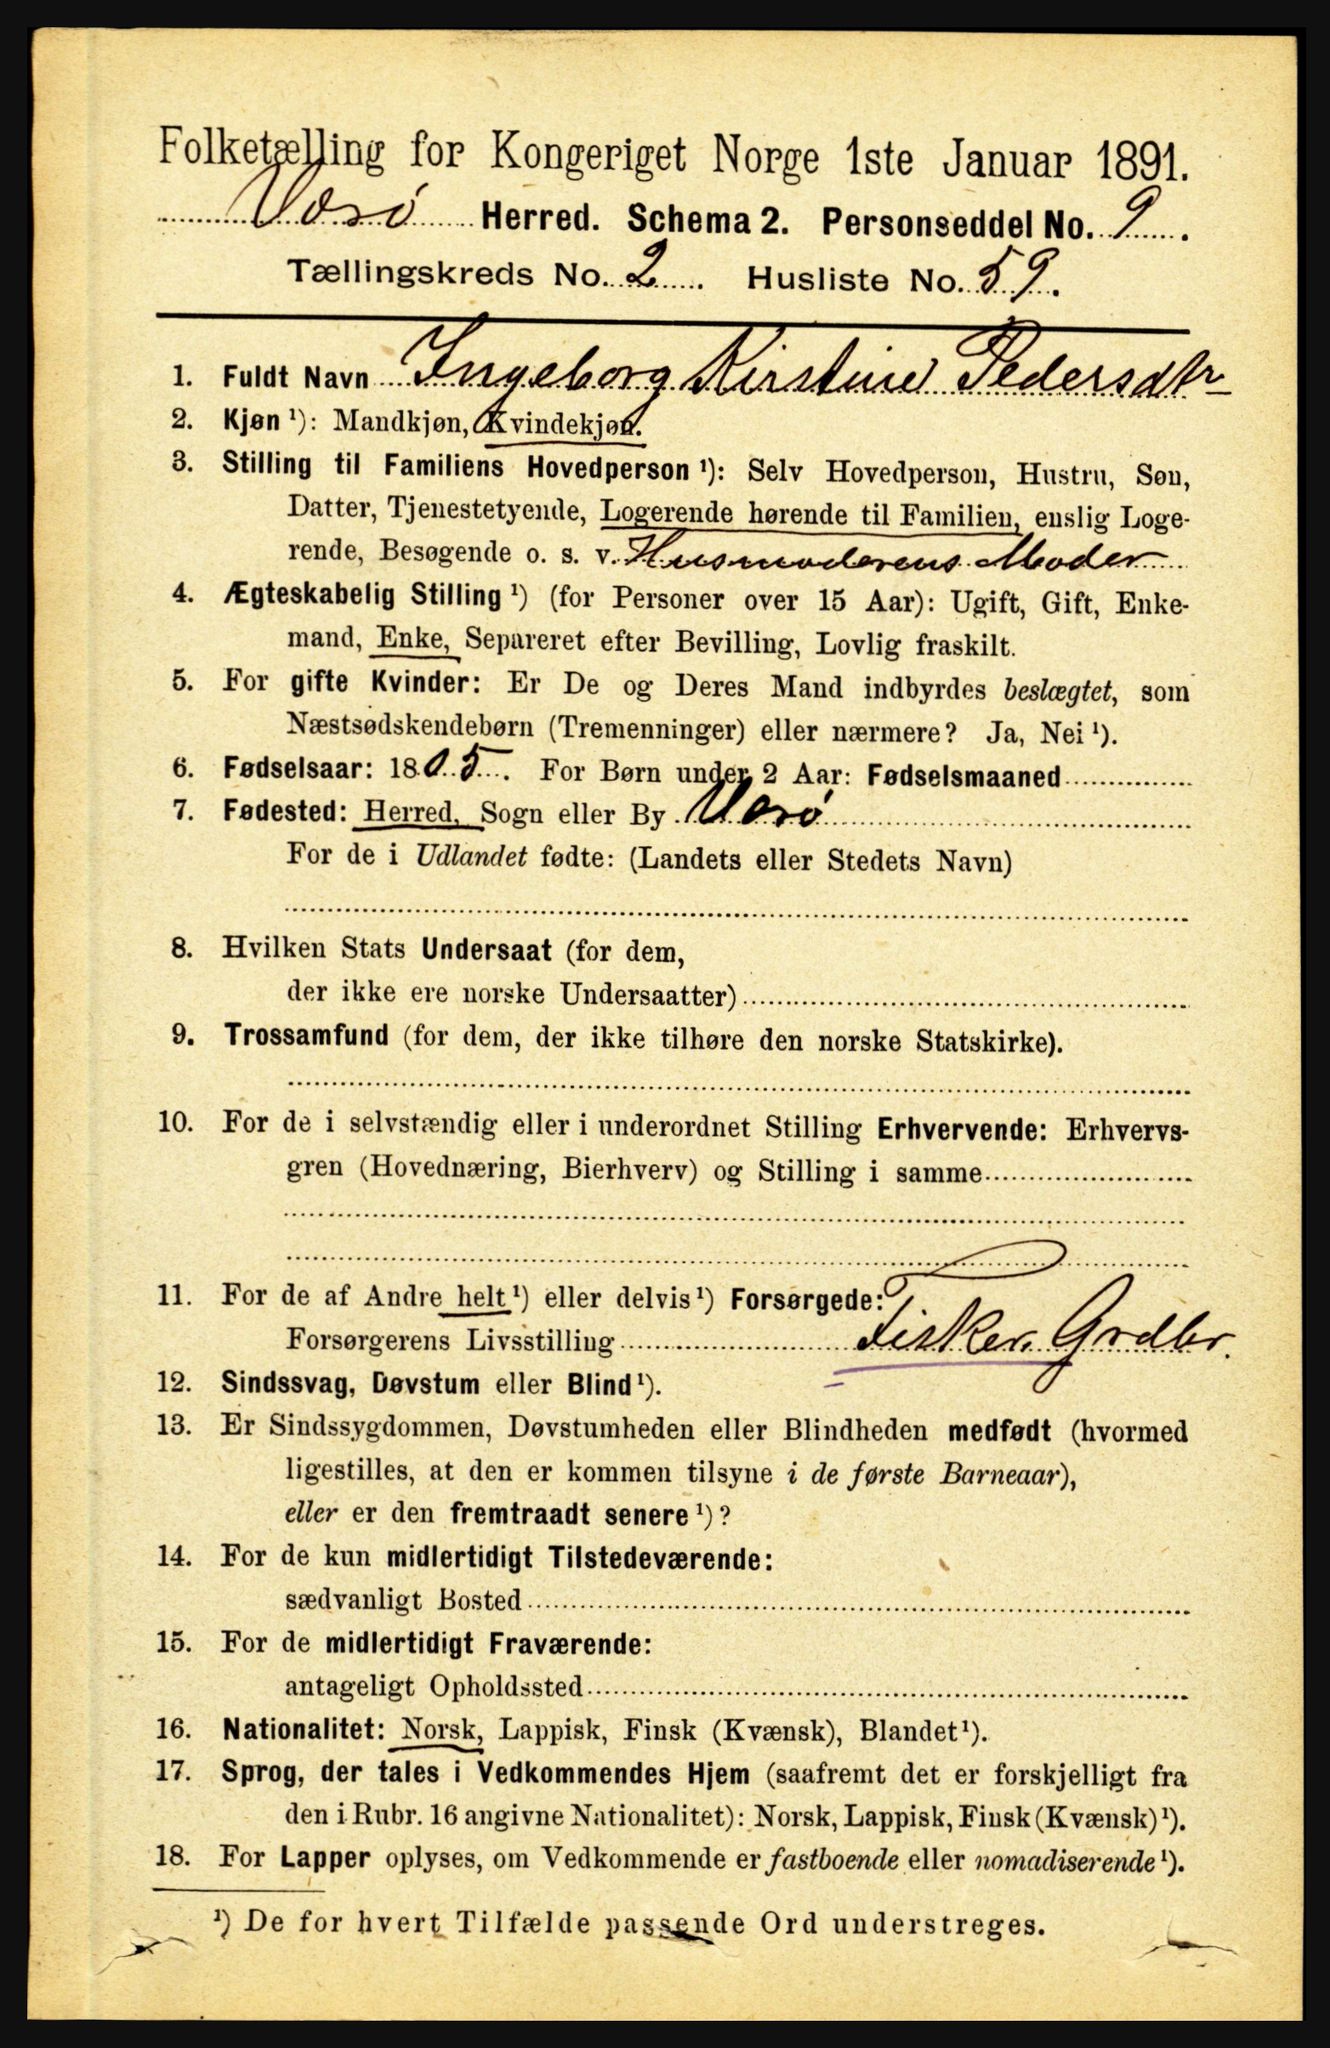 Folketælling for Kongeriget Norge 1ste Januar 1891.
Værø Herred. Schema 2. Personseddel No. 9.
Tællingskreds No. 2. Husliste No. 59.
1. Fuldt Navn Ingeborg Kirstine Pedersdtr
2. Kjøn ¹): Mandkjøn, Kvindekjøn.
3. Stilling til Familiens Hovedperson ¹): Selv Hovedperson, Hustru, Søn,
Datter, Tjenestetyende, Logerende hørende til Familien, enslig Loge-
rende, Besøgende o. s. v. Husmoderens Moder
4. Ægteskabelig Stilling ¹) (for Personer over 15 Aar): Ugift, Gift, Enke-
mand, Enke, Separeret efter Bevilling, Lovlig fraskilt.
5. For gifte Kvinder: Er De og Deres Mand indbyrdes beslægtet, som
Næstsødskendebørn (Tremenninger) eller nærmere? Ja, Nei ¹).
6. Fødselsaar: 1805. For Børn under 2 Aar: Fødselsmaaned
7. Fødested: Herred, Sogn eller By Værø
For de i Udlandet fødte: (Landets eller Stedets Navn)
8. Hvilken Stats Undersaat (for dem,
der ikke ere norske Undersaatter)
9. Trossamfund (for dem, der ikke tilhøre den norske Statskirke).
10. For de i selvstændig eller i underordnet Stilling Erhvervende: Erhvervs-
gren (Hovednæring, Bierhverv) og Stilling i samme
11. For de af Andre helt ¹) eller delvis ¹) Forsørgede:
Forsørgerens Livsstilling Fisker. Grdbr.
12. Sindssvag, Døvstum eller Blind ¹).
13. Er Sindssygdommen, Døvstumheden eller Blindheden medfødt (hvormed
ligestilles, at den er kommen tilsyne i de første Barneaar),
eller er den fremtraadt senere ¹)?
14. For de kun midlertidigt Tilstedeværende:
sædvanligt Bosted
15. For de midlertidigt Fraværende:
antageligt Opholdssted
16. Nationalitet: Norsk, Lappisk, Finsk (Kvænsk), Blandet ¹).
17. Sprog, der tales i Vedkommendes Hjem (saafremt det er forskjelligt fra
den i Rubr. 16 angivne Nationalitet): Norsk, Lappisk, Finsk (Kvænsk) ¹).
18. For Lapper oplyses, om Vedkommende er fastboende eller nomadiserende ¹).
¹) De for hvert Tilfælde passende Ord understreges.